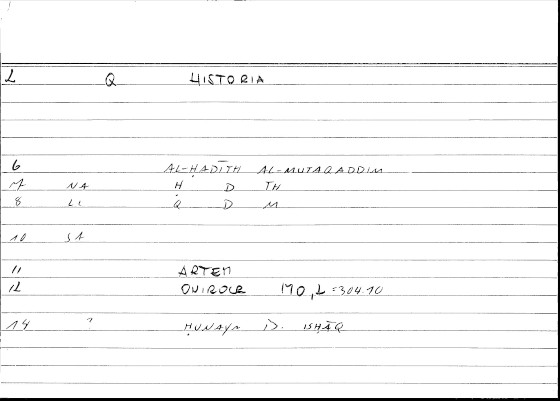 L Q HISTORIA
6 AL-ḤADĪTH AL-MUTAQADDIM
7 NA Ḥ D TH
8 LI Q D M
10 SA
11 ARTEM
12 ONIROCR 170,2=304.10
14 ? ḤUNAYN B. ISḤĀQ